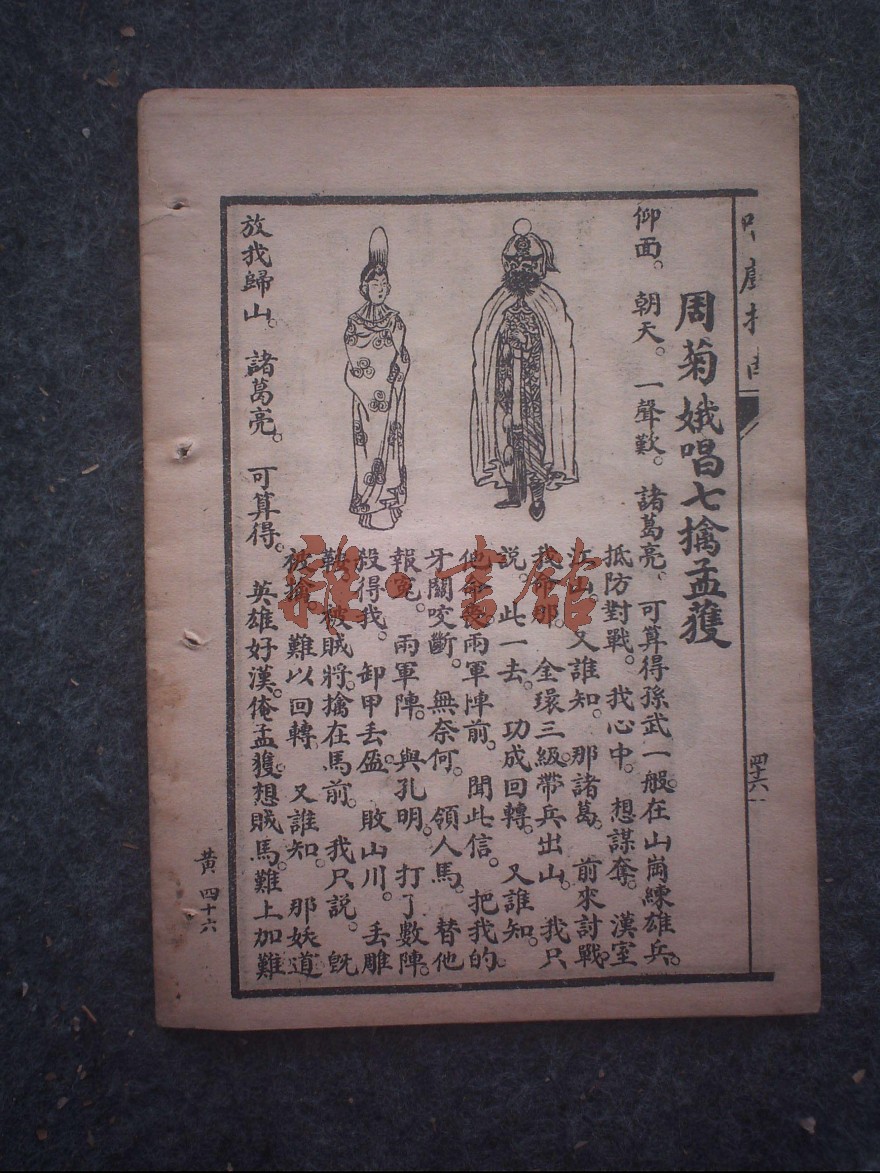 周菊娥唱七擒孟獲
仰面。朝天。一聲歎。諸葛亮、可算得孫武一般。在山崗練雄兵。
抵防對戰。我心中。想謀奪。漢室
江山。又誰知。那諸葛。前來討戰。
我命那。全環三級。帶兵出山。我只
說。此一去。功成回轉。又誰知。
他命喪兩軍陣前。聞此信。把我的
牙關咬斷。無奈何。領人馬。替他
報冤。兩軍陣。與孔明。打了數陣。
殺得我。卸甲丢盔。敗山川。丢雕
鞍。被賊將。擒在馬前。我只說。旣
被擒。難以回轉。又誰知。那妖道
放我歸山。諸葛亮。可算得。英雄好漢。俺孟獲。想賊馬。難上加難
四十六
黃 四十六
雜·書館